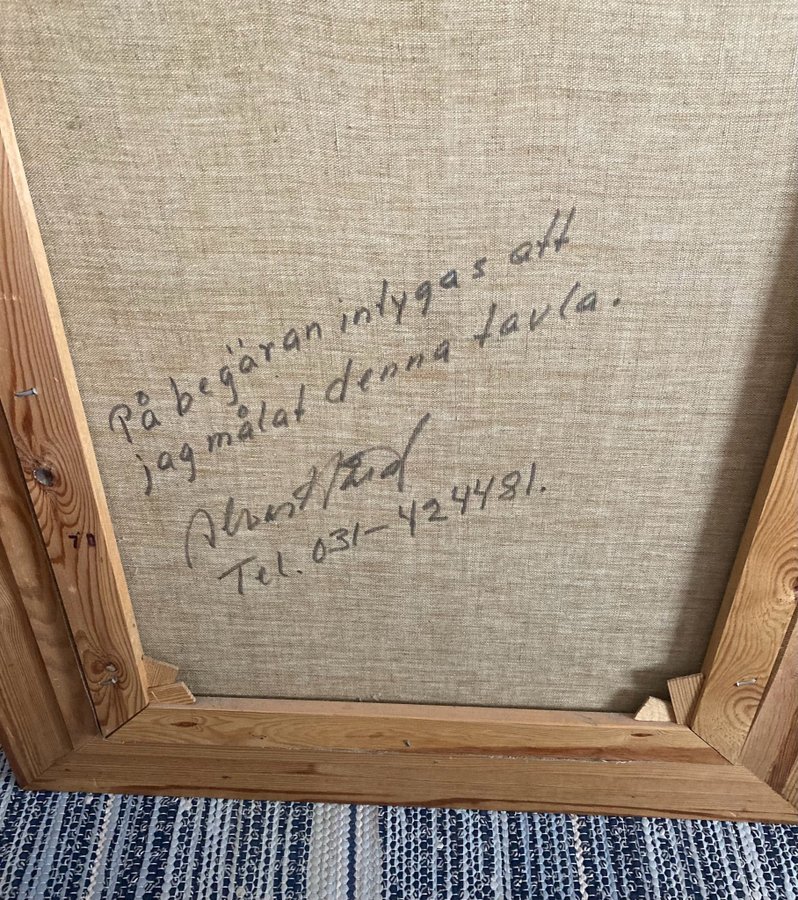 På begäran intygas att
jag målat denna tavla.
Tel. 031-424481.